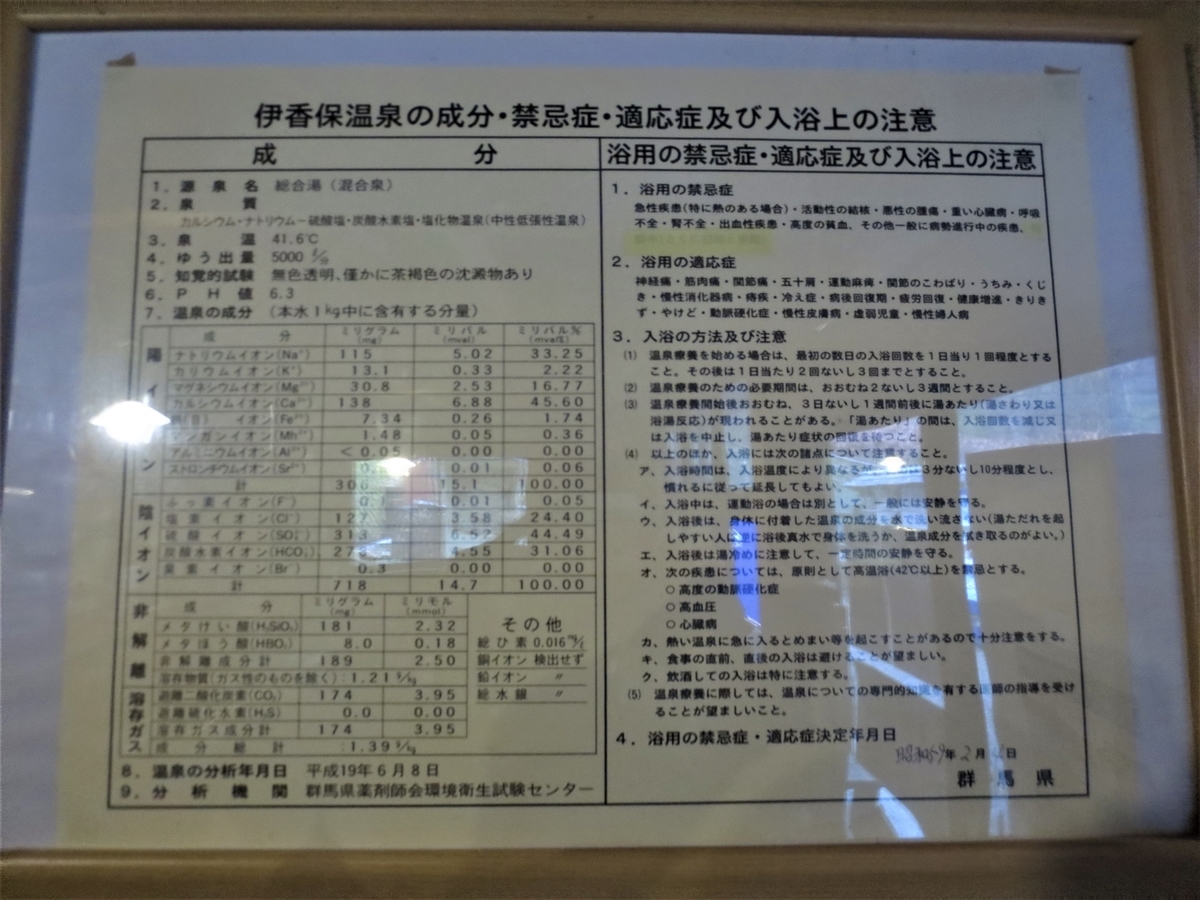 伊香保温泉の成分・禁忌症・適応症及び入浴上の注意
成 分
1．源泉名 総合湯（混合泉）
2．泉質
カルシウム・ナトリウム－硫酸塩・炭酸水素塩・塩化物温泉（中性低張性温泉）
3．泉温 41.6℃
4．ゆう出量 5000
5．知覚的試験 無色透明、僅かに茶褐色の沈澱物あり
6．PH値 6.3
7．温泉の成分 （本水1kg中に含有する分量）
陽イ ン
成 分 ミリグラム(mg) ミリバル(mval) ミリバル%(mval%)
ナトリウムイオン(Na⁺) 115 5.02 33.25
カリウムイオン(K⁺) 13.1 0.33 2.22
マグネシウムイオン(Mg²⁺) 30.8 2.53 16.77
カルシウムイオン(Ca²⁺) 138 6.88 45.60
イオン(Fe²⁺) 7.34 0.26 1.74
マンガンイオン(Mn²⁺) 1.48 0.05 0.36
アルミニウムイオン(Al³⁺) <0.05 0.00 0.00
ストロンチウムイオン(Sr²⁺) 0.01 0.06
計 306 15.1 100.00
陰イオン
ふっ素イオン(F⁻) 0.1 0.01 0.05
塩素イオン(Cl⁻) 127 3.58 24.40
硫酸イオン(SO₄²⁻) 313 6.52 44.49
炭酸水素イオン(HCO₃⁻) 4.55 31.06
臭素イオン(Br⁻) 0.3 0.00 0.00
計 718 14.7 100.00
非解離
成 分 ミリグラム(mg) ミリモル(mmol)
メタけい酸(H₂SiO₃) 181 2.32
メタほう酸(HBO₂) 8.0 0.18
非解離成分計 189 2.50
溶存物質(ガス性のものを除く)：1.21g/kg
溶存ガス
遊離二酸化炭素(CO₂) 174 3.95
遊離硫化水素(H₂S) 0.0 0.00
溶存ガス成分計 174 3.95
成分総計 ：1.39g/kg
その他
総ひ素 0.016mg/kg
銅イオン 検出せず
鉛イオン 〃
総水銀 〃
8．温泉の分析年月日 平成19年6月8日
9．分析機関 群馬県薬剤師会環境衛生試験センター
浴用の禁忌症・適応症及び入浴上の注意
1．浴用の禁忌症
急性疾患（特に熱のある場合）・活動性の結核・悪性の腫瘍・重い心臓病・呼吸
不全・腎不全・出血性疾患・高度の貧血、その他一般に病勢進行中の疾患、
2．浴用の適応症
神経痛・筋肉痛・関節痛・五十肩・運動麻痺・関節のこわばり・うちみ・くじ
き・慢性消化器病・痔疾・冷え症・病後回復期・疲労回復・健康増進・きりき
ず・やけど・動脈硬化症・慢性皮膚病・虚弱児童・慢性婦人病
3．入浴の方法及び注意
(1) 温泉療養を始める場合は、最初の数日の入浴回数を1日当り1回程度とする
こと。その後は1日当たり2回ないし3回までとすること。
(2) 温泉療養のための必要期間は、おおむね2ないし3週間とすること。
(3) 温泉療養開始後おおむね、3日ないし1週間前後に湯あたり（湯さわり又は
浴湯反応）が現われることがある。「湯あたり」の間は、入浴回数を減じ又
は入浴を中止し、湯あたり症状の回復を待つこと。
(4) 以上のほか、入浴には次の諸点について注意すること。
ア、入浴時間は、入浴温度により異なるが、 は3分ないし10分程度とし、
慣れるに従って延長してもよい。
イ、入浴中は、運動浴の場合は別として、一般には安静を守る。
ウ、入浴後は、身体に付着した温泉の成分を水で洗い流さない（湯ただれを起
しやすい人は逆に浴後真水で身体を洗うか、温泉成分を拭き取るのがよい。）
エ、入浴後は湯冷めに注意して、一定時間の安静を守る。
オ、次の疾患については、原則として高温浴（42℃以上）を禁忌とする。
○高度の動脈硬化症
○高血圧
○心臓病
カ、熱い温泉に急に入るとめまい等を起こすことがあるので十分注意をする。
キ、食事の直前、直後の入浴は避けることが望ましい。
ク、飲酒しての入浴は特に注意する。
(5) 温泉療養に際しては、温泉についての専門的知識を有する医師の指導を受け
ることが望ましいこと。
4．浴用の禁忌症・適応症決定年月日
昭和59年2月 日
群馬県